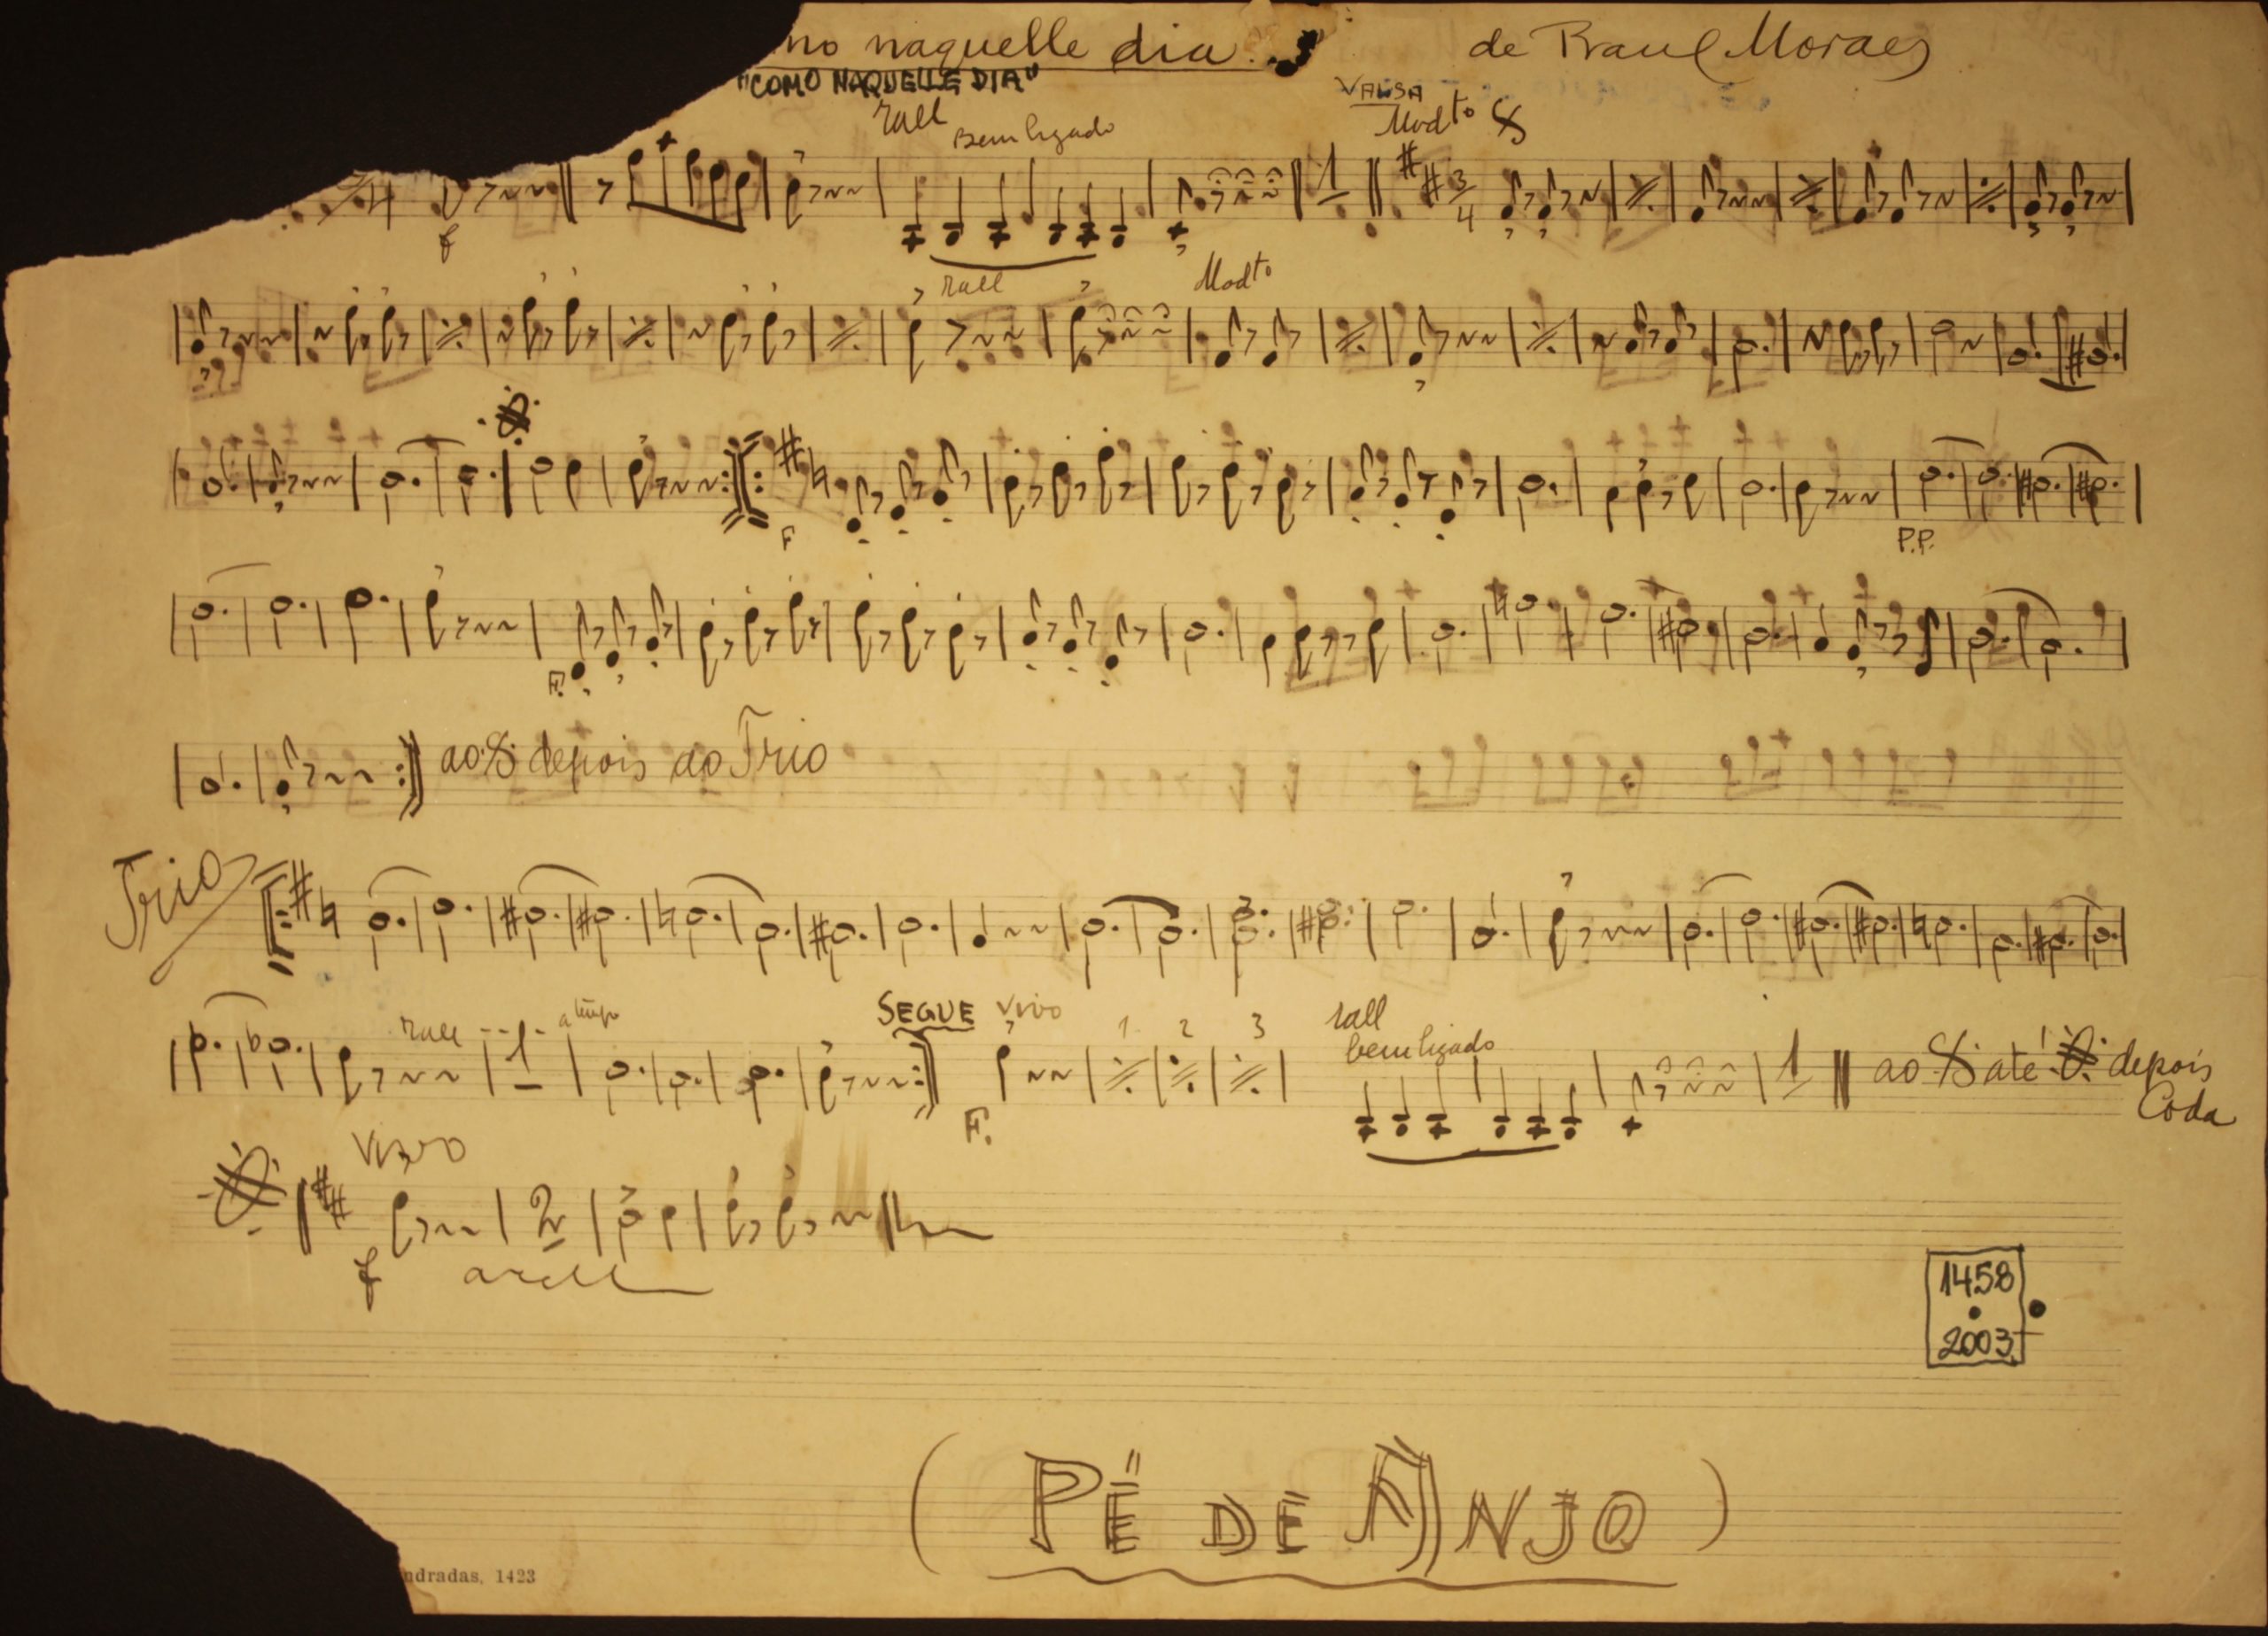 no naquelle dia. de Raul Moraes
"COMO NAQUELLE DIA"
VALSA
rall Bem ligado Modto
3/4
f 1 3 4
rall Modto
F P.P.
F.
ao depois ao Trio
Trio
rall - - 1 - a tempo SEGUE Vivo 1 2 3 rall bem ligado
F. 1 ao até depois Coda
Vivo
2
f
1458
2003
(PÉ DE ANJO)
ndradas, 1423